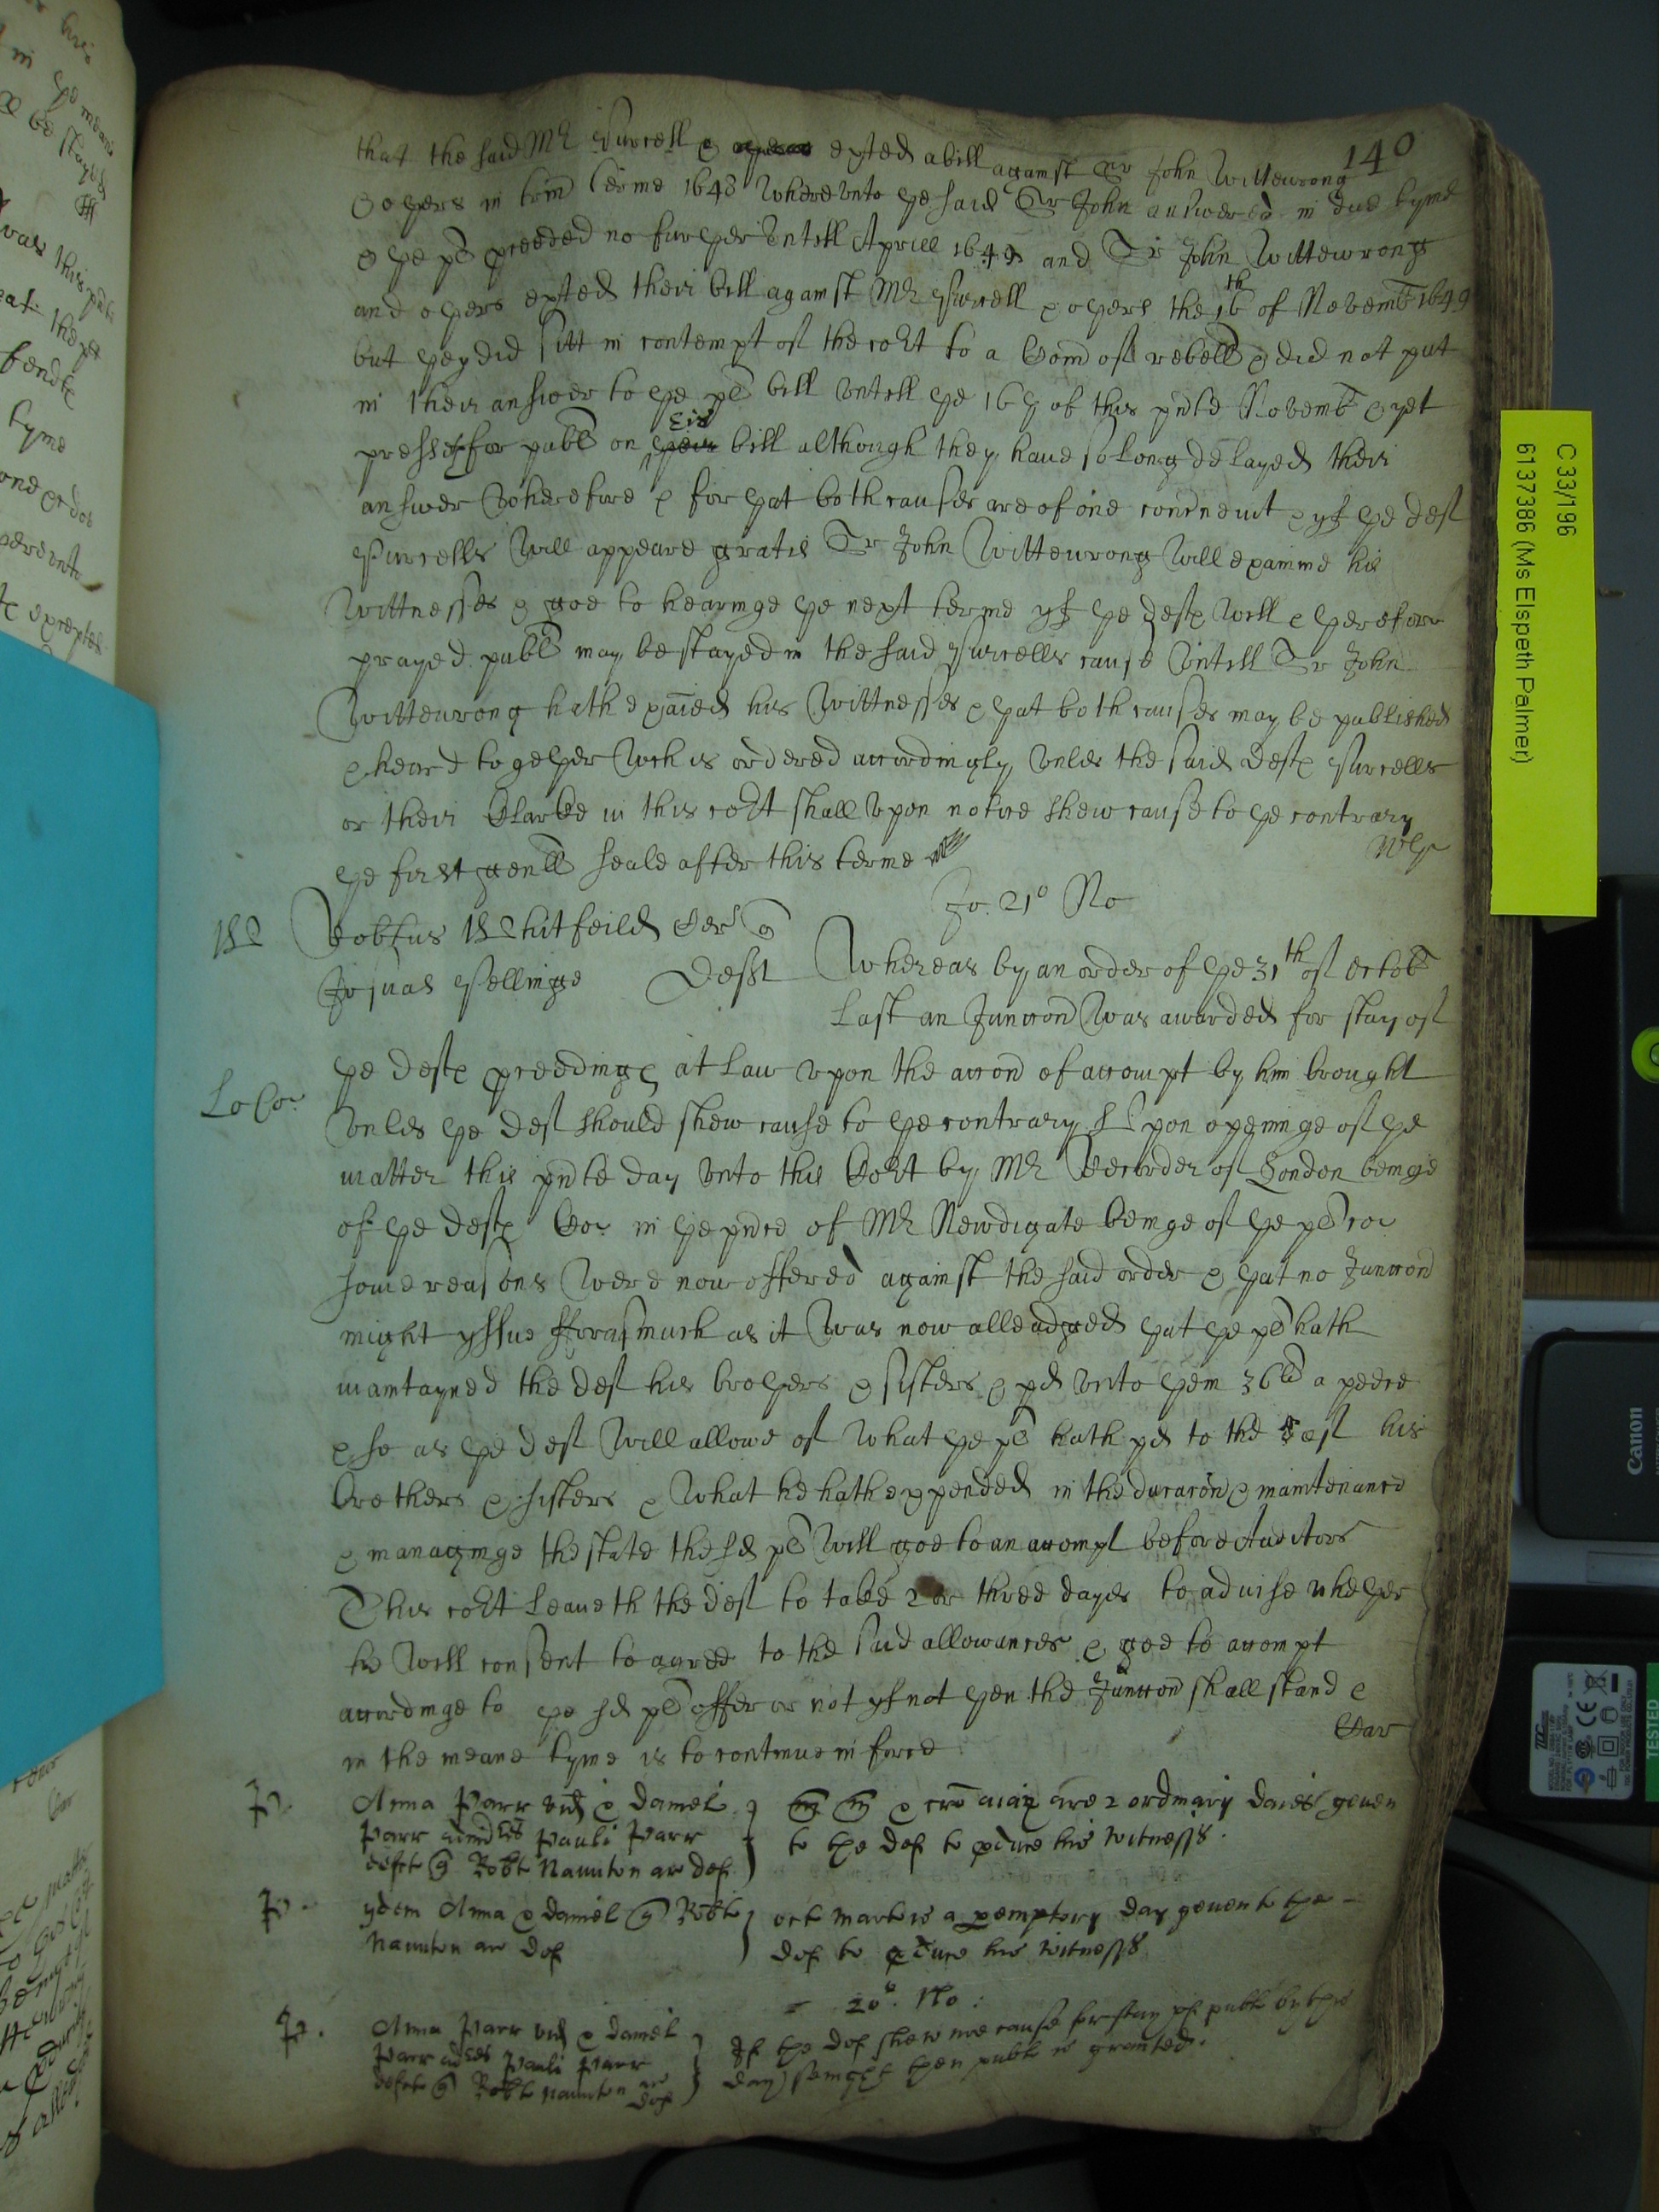 140
that the said Mr Purcell & exted a bill against Sr John Wittewrong
& oyers in trin terme 1648 whereunto ye said Sr John answered in due tyme
& ye pl proceeded no furyer untill Aprill 1649 and Sr John Wittewrong
and oyers exted their bill against Mr Purcell & oyers the 16th of Novemb 1649
but yey did sitt in contempt of the cort to a Com of rebell & did not put
in their answer to ye pl bill untill ye 16 of this pnte Novemb & yet
presse for publ on yeir bill although they have so long delayed their
answer Wherefore & for yat both causes are of one & yf ye def
Purcells will appeare gratis Sr John Wittewrong will examine his
Wittnesses & goe to hearinge ye next terme yf ye defte will & yerefore
prayed publ may be stayed in the said Purcells cause untill Sr John
Wittewrong hath exaied his Wittnesses & yat both causes may be published
& heard togeyer wch is ordered accordingly unles the said defte Purcells
or their Clarke in this cort shall upon notice shew cause to ye contrary
ye first genll seale after this terme
Jo. 21o No
Robtus Whitfeild Ar Q
Josuas Pellinge Deft
Whereas by an order of ye 31th of Octob
Last an Junccon was awarded for stay of
Lo Co
ye defte proceedinge at law upon the accon of accompt by him brought
unles ye def should shew cause to ye contrary Upon openinge of ye
matter this pnte day unto this Cort by Mr Recorder of London beinge
of ye defte Co in ye pnce of Mr Newdigate beinge of ye pl co
some reasons were now offered against the said order & yat no Junccon
might yssue fforasmuch as it was now alleadged yat ye pl hath
maintayned the def his broyers & sisters & pd unto yem 36ld a peece
& so as ye def will allowe of what ye pl hath pd to the def his
brothers & sisters & what he hath expended in the ducacon & maintenance
& managinge the state the sd pl will goe to an accompt before Auditors
This cort leaveth the def to take 2 or three dayes to advise wheyer
he will consent to agree to the said allowances & goe to accompt
accordinge to ye sd pl offer or not yf not yen the Junccon shall stand &
in the meane tyme is to continue in force
Car
P.
Anna Parr vid & Daniel
Parr Pauli Parr
defct Q Robt Naunton ar def.
& cro aiar are 2 ordinary daies geven
to the def to pduce his witness.
P.
ydem Anna & Daniel Q Robt
Naunton ar def
oct Martis is a pemptory day geven to the
def to pduce his witness
20o. No:
P.
Anna Parr vid & Daniel
Parr Pauli Parr
defct Q Robt Naunton ar def
If the def shew noe cause for stay of publ by this
day sennight then publ is granted.
C 33/196
6137386 (Ms Elspeth Palmer)
Canon
TESTED